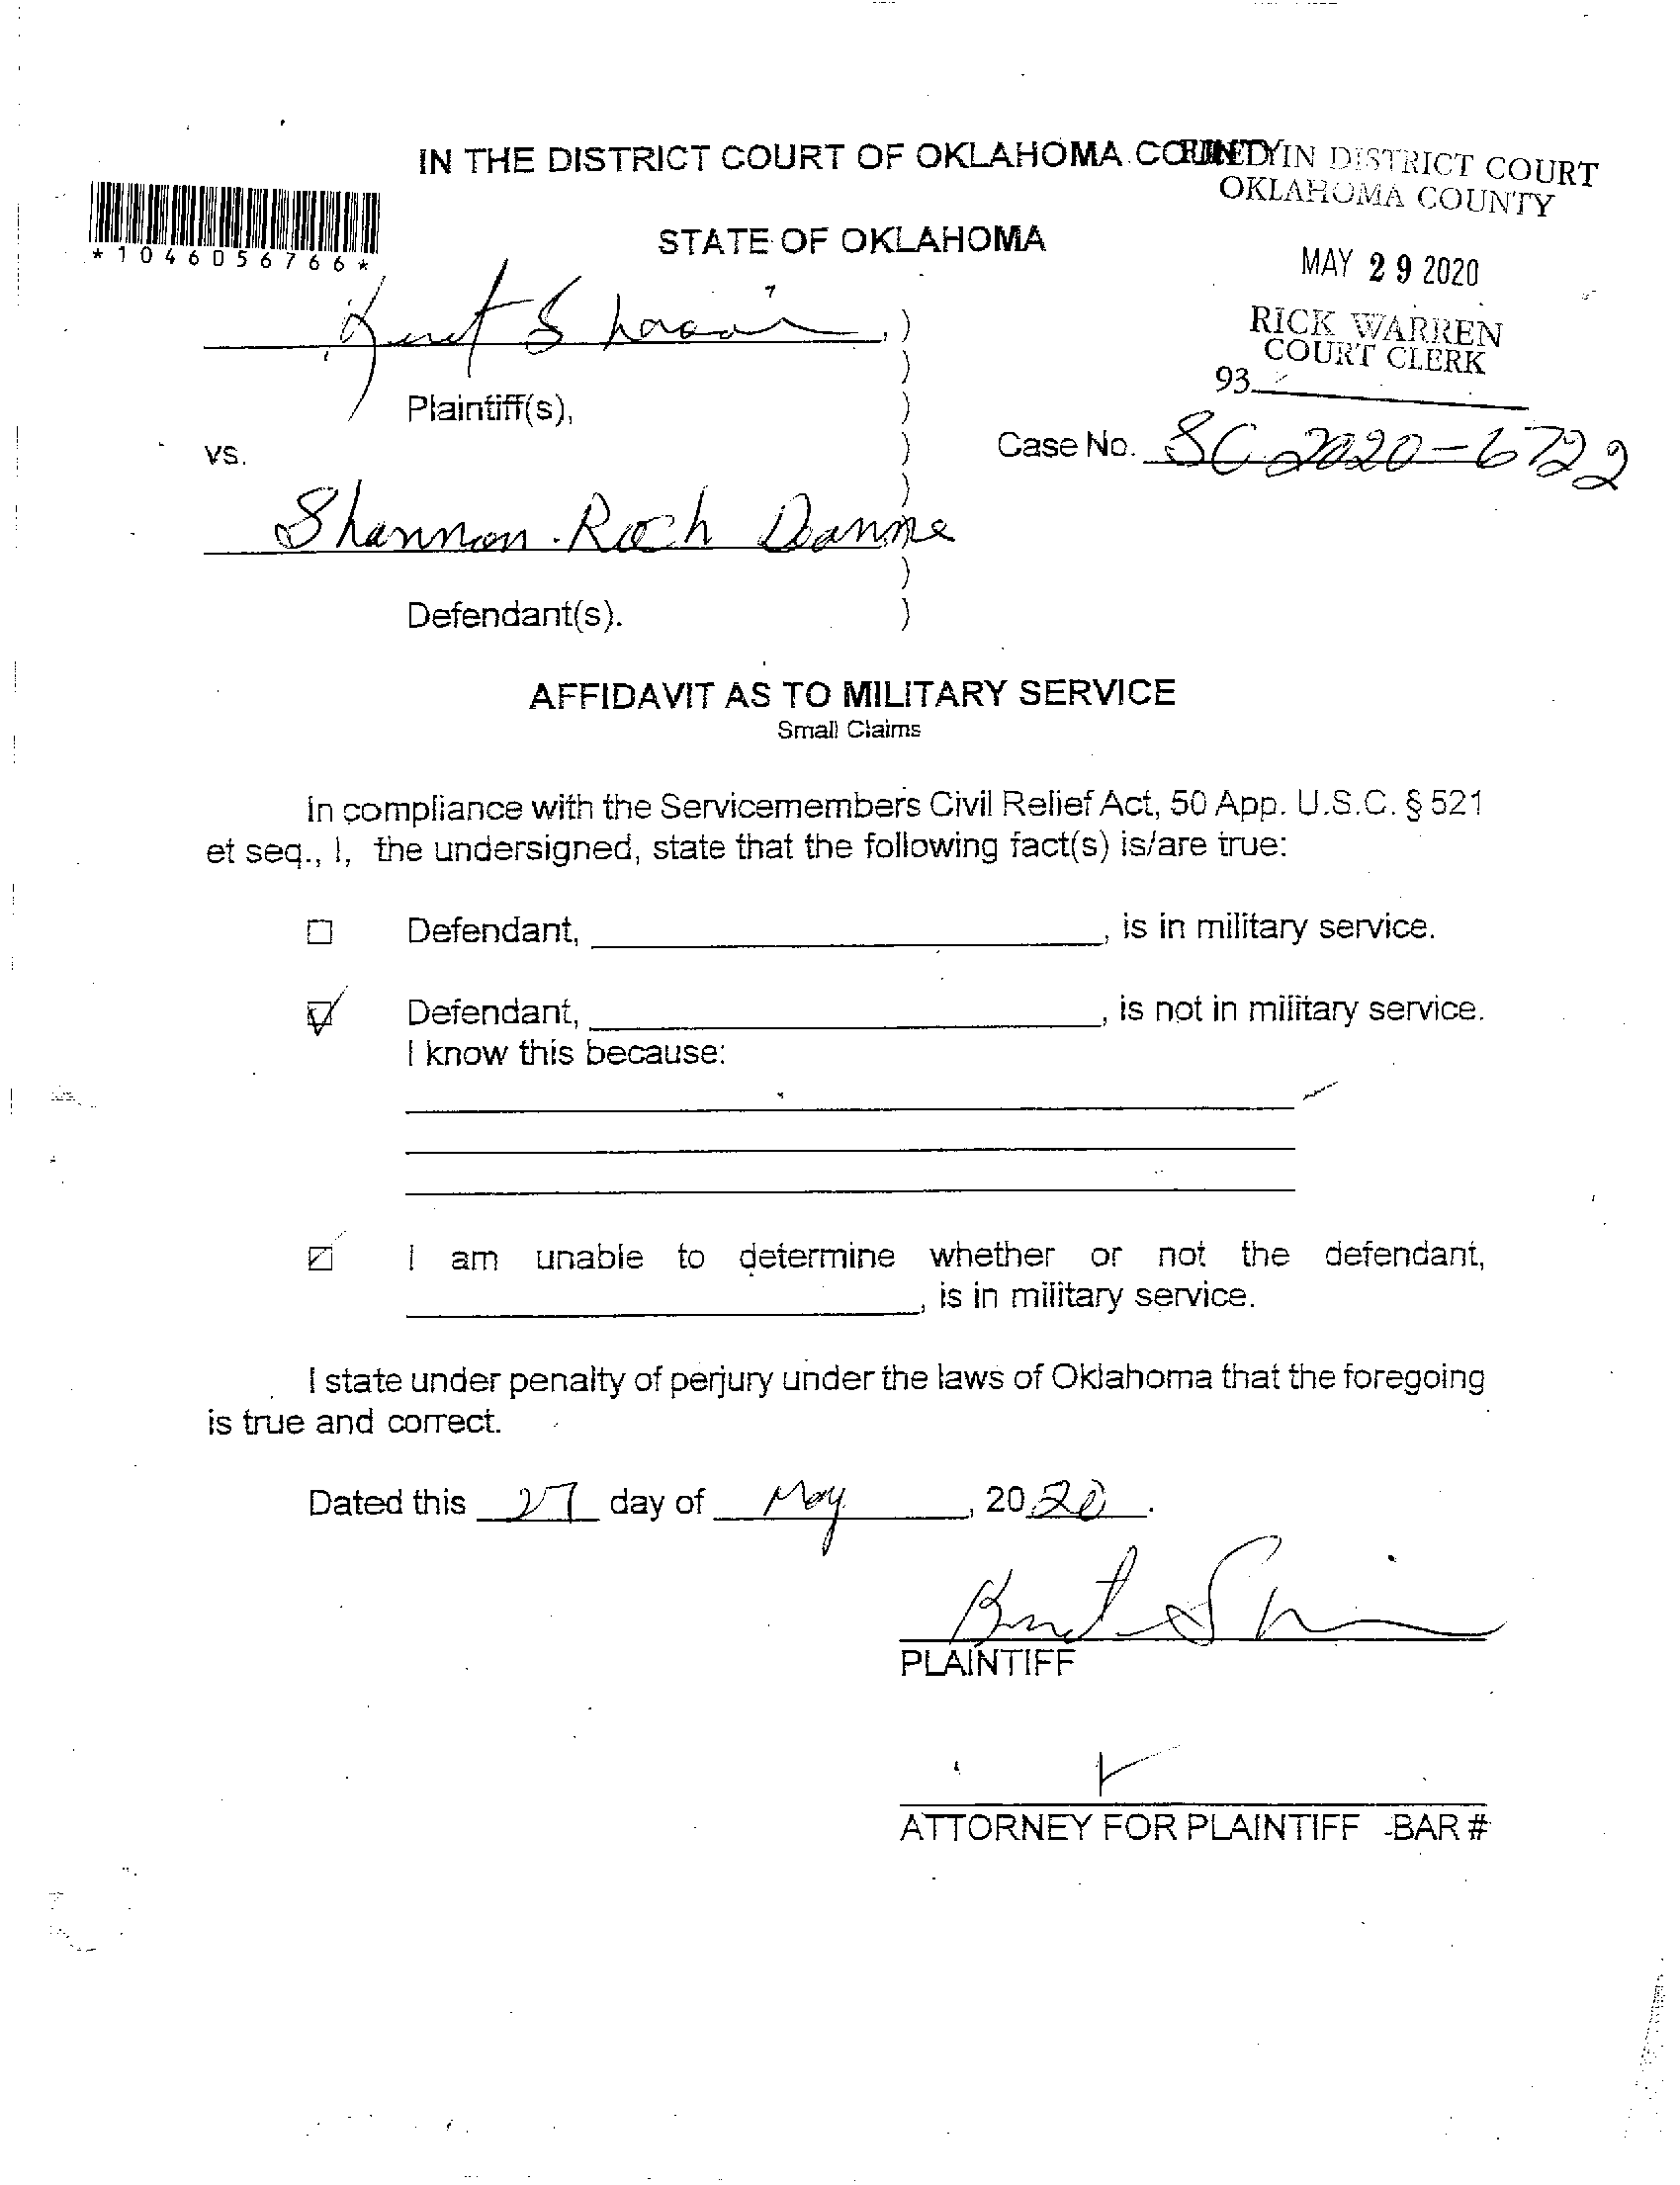 IN THE DISTRICT COURT OF OKLAHOMA COUNTY
FILED IN DISTRICT COURT
OKLAHOMA COUNTY
*1046056766*
STATE OF OKLAHOMA
MAY 29 2020
RICK WARREN
COURT CLERK
93
Plaintiff(s),
vs.
Case No. SC 2020-6722
Shannon Roch Deanne
Defendant(s).
AFFIDAVIT AS TO MILITARY SERVICE
Small Claims
In compliance with the Servicemembers Civil Relief Act, 50 App. U.S.C. § 521
et seq., I, the undersigned, state that the following fact(s) is/are true:
Defendant, , is in military service.
Defendant, , is not in military service.
I know this because:
I am unable to determine whether or not the defendant,
, is in military service.
I state under penalty of perjury under the laws of Oklahoma that the foregoing
is true and correct.
Dated this 27 day of May, 2020.
PLAINTIFF
ATTORNEY FOR PLAINTIFF -BAR #